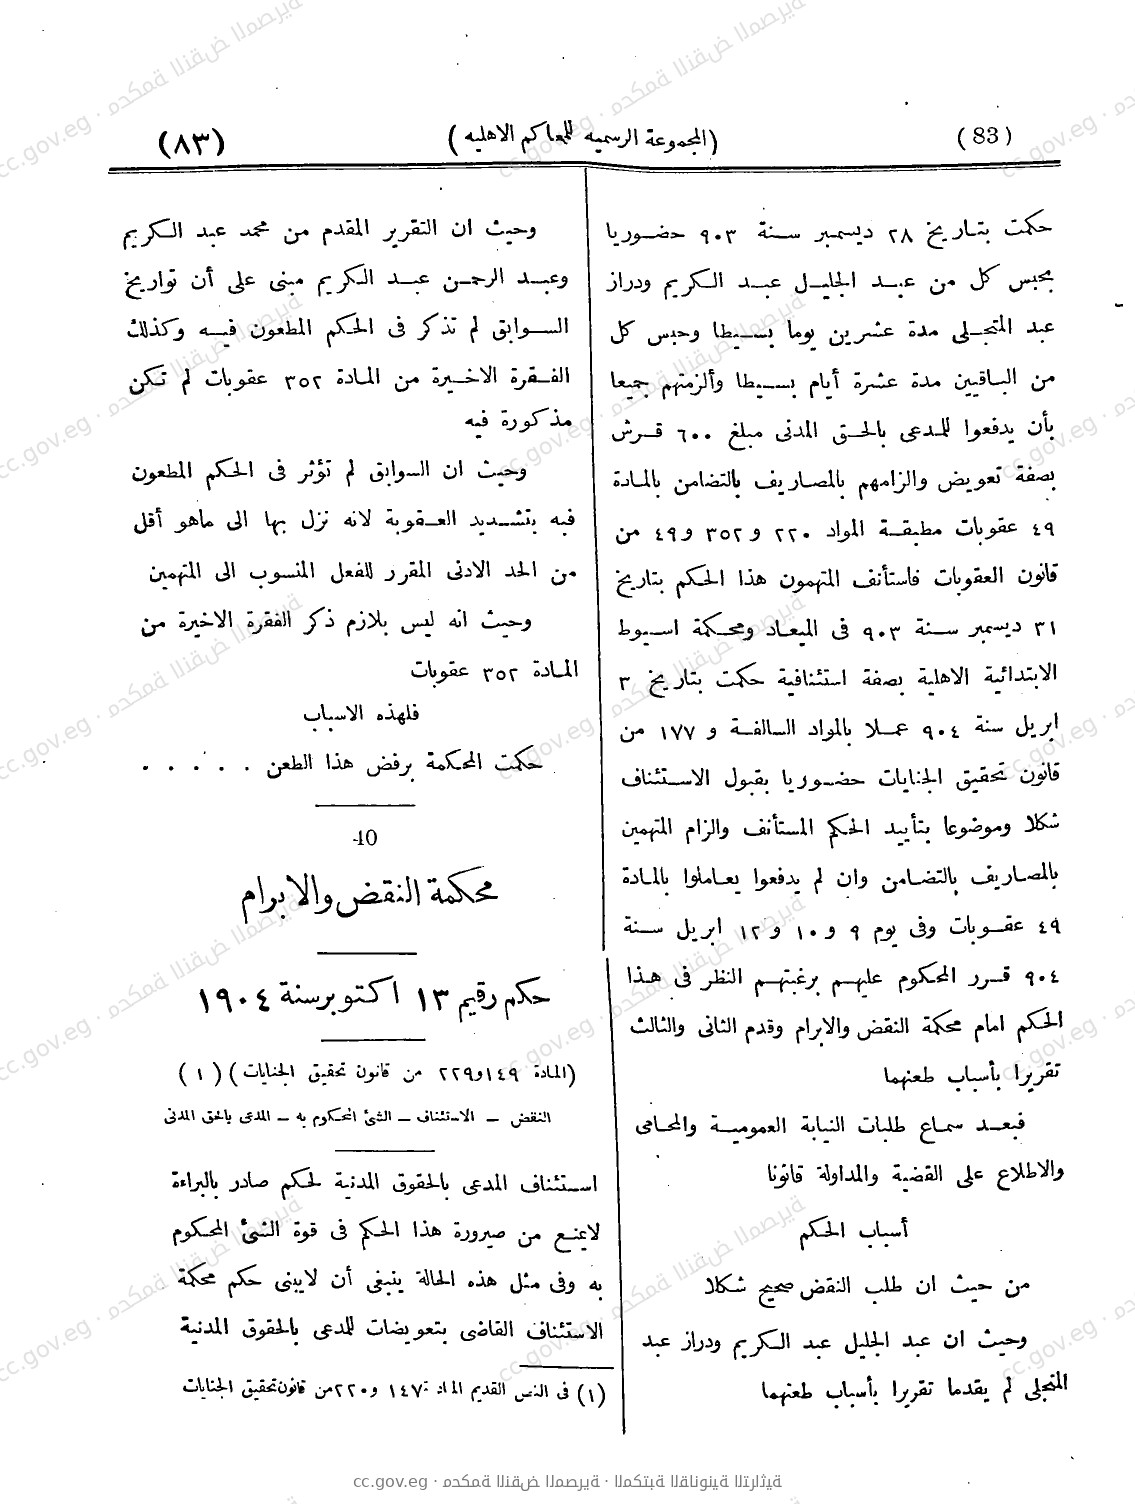 (83)
(المجموعة الرسميه للمحاكم الاهليه)
(٨٣)
حكمت بتاريخ ٢٨ ديسمبر سنة ٩٠٣ حضوريا
بحبس كل من عبد الجليل عبد الكريم ودراز
عبد المتجلى مدة عشرين يوما بسيطا وحبس كل
من الباقيين مدة عشرة أيام بسيطا وألزمتهم جميعا
بأن يدفعوا للمدعى بالحق المدنى مبلغ ٦٠٠ قرش
بصفة تعويض والزامهم بالمصاريف بالتضامن بالمادة
٤٩ عقوبات مطبقة المواد ٢٢٠ و ٣٥٢ و ٤٩ من
قانون العقوبات فاستأنف المتهمون هذا الحكم بتاريخ
٣١ ديسمبر سنة ٩٠٣ فى الميعاد ومحكمة اسيوط
الابتدائية الاهلية بصفة استئنافية حكمت بتاريخ ٣
ابريل سنة ٩٠٤ عملا بالمواد السالفة و ١٧٧ من
قانون تحقيق الجنايات حضوريا بقبول الاستئناف
شكلا وموضوعا بتأييد الحكم المستأنف والزام المتهمين
بالمصاريف بالتضامن وان لم يدفعوا يعاملوا بالمادة
٤٩ عقوبات وفى يوم ٩ و ١٠ و ١٢ ابريل سنة
٩٠٤ قرر المحكوم عليهم برغبتهم النظر فى هذا
الحكم امام محكمة النقض والابرام وقدم الثانى والثالث
تقريرا بأسباب طعنهما
فبعد سماع طلبات النيابة العمومية والمحامى
والاطلاع على القضية والمداولة قانونا
أسباب الحكم
من حيث ان طلب النقض صحيح شكلا
وحيث ان عبد الجليل عبد الكريم ودراز عبد
المتجلى لم يقدما تقريرا بأسباب طعنهما
وحيث ان التقرير المقدم من محمد عبد الكريم
وعبد الرحمن عبد الكريم مبنى على أن تواريخ
السوابق لم تذكر فى الحكم المطعون فيه وكذلك
الفقرة الاخيرة من المادة ٣٥٢ عقوبات لم تكن
مذكورة فيه
وحيث ان السوابق لم تؤثر فى الحكم المطعون
فيه بتشديد العقوبة لانه نزل بها الى ماهو أقل
من الحد الادنى المقرر للفعل المنسوب الى المتهمين
وحيث انه ليس بلازم ذكر الفقرة الاخيرة من
المادة ٣٥٢ عقوبات
فلهذه الاسباب
حكمت المحكمة برفض هذا الطعن . . . . .
40
محكمة النقض والابرام
حكم رقيم ١٣ اكتوبر سنة ١٩٠٤
(المادة ١٤٩ و٢٢٩ من قانون تحقيق الجنايات) (١)
النقض – الاستئناف – الشئ المحكوم به – المدعى بالحق المدنى
استئناف المدعى بالحقوق المدنية لحكم صادر بالبراءة
لايمنع من صيرورة هذا الحكم فى قوة الشئ المحكوم
به وفى مثل هذه الحالة ينبغى أن لايبنى حكم محكمة
الاستئناف القاضى بتعويضات للمدعى بالحقوق المدنية
(١) فى النص القديم المادة ١٤٧ و٢٢٠ من قانون تحقيق الجنايات
cc.gov.eg · محكمة النقض المصرية · المكتبة القانونية التراثية